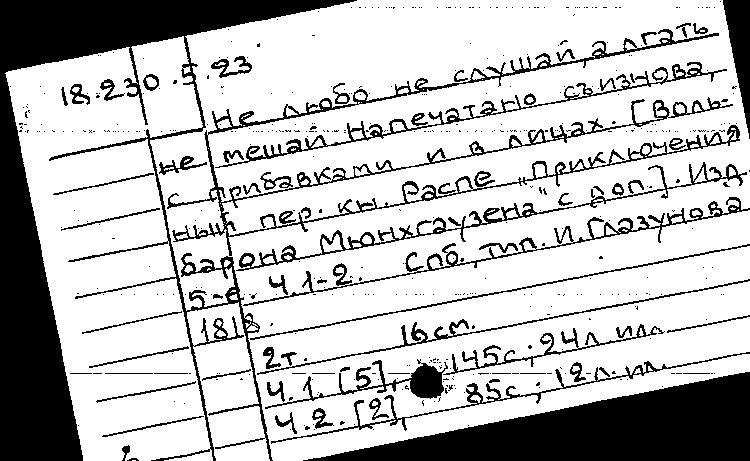 18.230.5.23
Не любо не слушай, а лгать
не мешай. Напечатано съизнова,
с прибавками и в лицах. [Воль-
ный пер. кн. Распе „Приключения
барона Мюнхгаузена" с доп.]. Изд.
5-е. Ч.1-2. Спб., тип. И. Глазунова
1818.
2т. 16см.
Ч.1. [5], 145с.; 24л. илл.
Ч.2. [2], 85с.; 12л. ил.